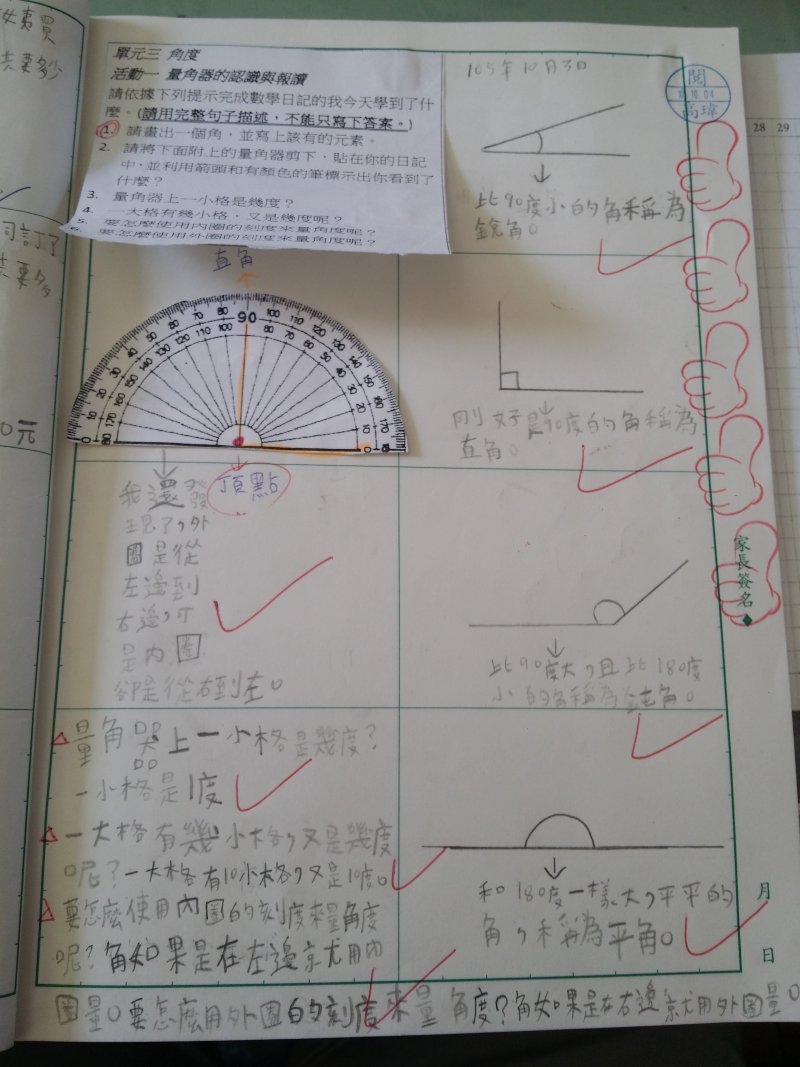 女夷買
共要多少
司訂了
共要多
0元
單元三 角度
活動一 量角器的認識與報讀
請依據下列提示完成數學日記的我今天學到了什
麼。(請用完整句子描述,不能只寫下答案。)
1. 請畫出一個角,並寫上該有的元素。
2. 請將下面附上的量角器剪下,貼在你的日記
中,並利用箭頭和有顏色的筆標示出你看到了
什麼?
3. 量角器上一小格是幾度?
4. 一大格有幾小格,又是幾度呢?
5. 要怎麼使用內圈的刻度來量角度呢?
6. 要怎麼使用外圈的刻度來量角度呢?
105年10月3日
閱
10.04
高瑋
28 29
比90度小的角稱為
銳角。
直角
90
剛好是90度的角稱為
直角。
頂點
我還發
現了,外
圈是從
左邊到
右邊,可
是內圈
卻是從右到左。
家長簽名
比90度大,且比180度
小的角稱為鈍角。
量角器上一小格是幾度?
一小格是1度
一大格有幾小格,又是幾度
呢?一大格有10小格,又是10度。
要怎麼使用內圈的刻度來量角度
呢?角如果是在左邊就用內
圈量。要怎麼用外圈的刻度來量角度?角如果是在右邊就用外圈量。
和180度一樣大,平平的
角,稱為平角。
月
日